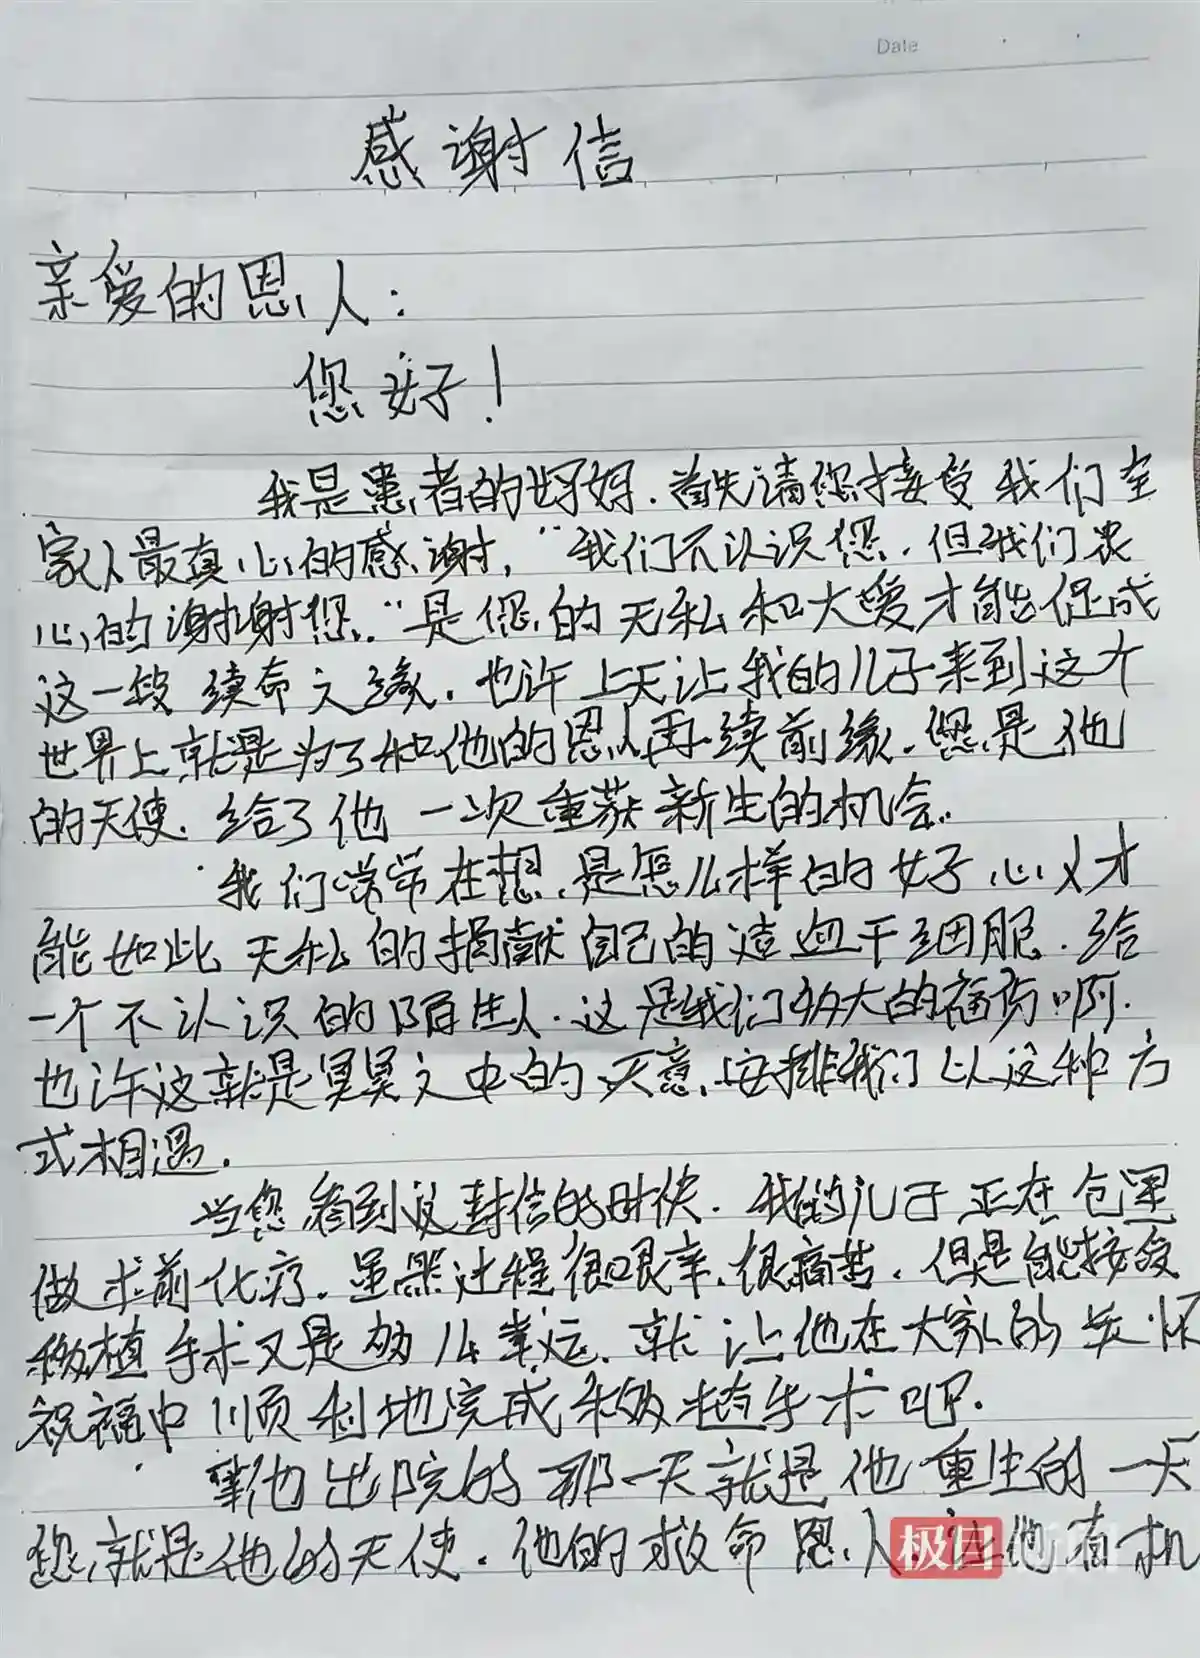 Date
感谢信
亲爱的恩人：
您好！
我是患者的妈妈.首先请您接受我们全
家人最真心的感谢,“我们不认识您.但我们衷
心的谢谢您.”是您的无私和大爱才能促成
这一段续命之缘.也许上天让我的儿子来到这个
世界上就是为了和他的恩人再续前缘.您是他
的天使.给了他一次重获新生的机会.
我们常常在想.是怎么样的好心人才
能如此无私的捐献自己的造血干细胞.给
一个不认识的陌生人.这是我们多大的福份啊.
也许这就是冥冥之中的天意.安排我们以这种方
式相遇.
当您看到这封信的时侯.我的儿子正在仓里
做术前化疗.虽然过程很艰辛.很痛苦.但是能接受
移植手术又是多么幸运.就让他在大家的关怀
祝福中顺利地完成移植手术吧.
等他出院的那一天就是他重生的一天
您就是他的天使.他的救命恩人.让他有机
极目新闻